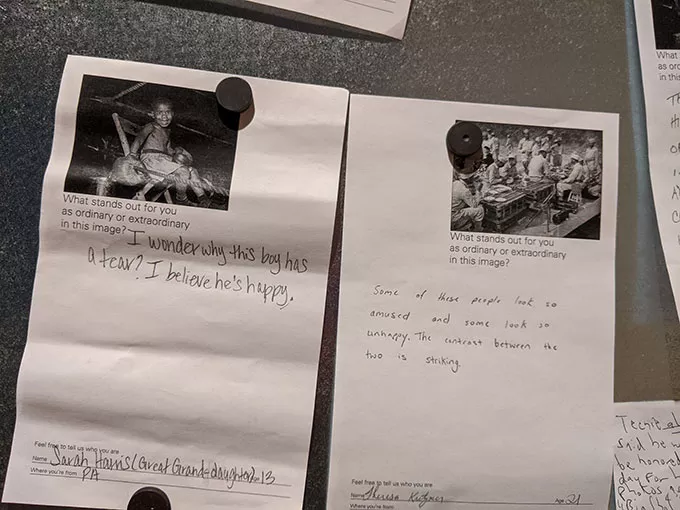 What stands out for you
as ordinary or extraordinary
in this image?
I wonder why this boy has
a tear? I believe he's happy.
Feel free to tell us who you are
Name Sarah Harris (Great Grand-daughter) 13
Where you're from PA
What stands out for you
as ordinary or extraordinary
in this image?
Some of these people look so
amused and some look so
unhappy. The contrast between the
two is striking.
Feel free to tell us who you are
Name Theresa
Age 21
Where you're from
What
as ord
in this
said he w
be honored
day For h
Photos